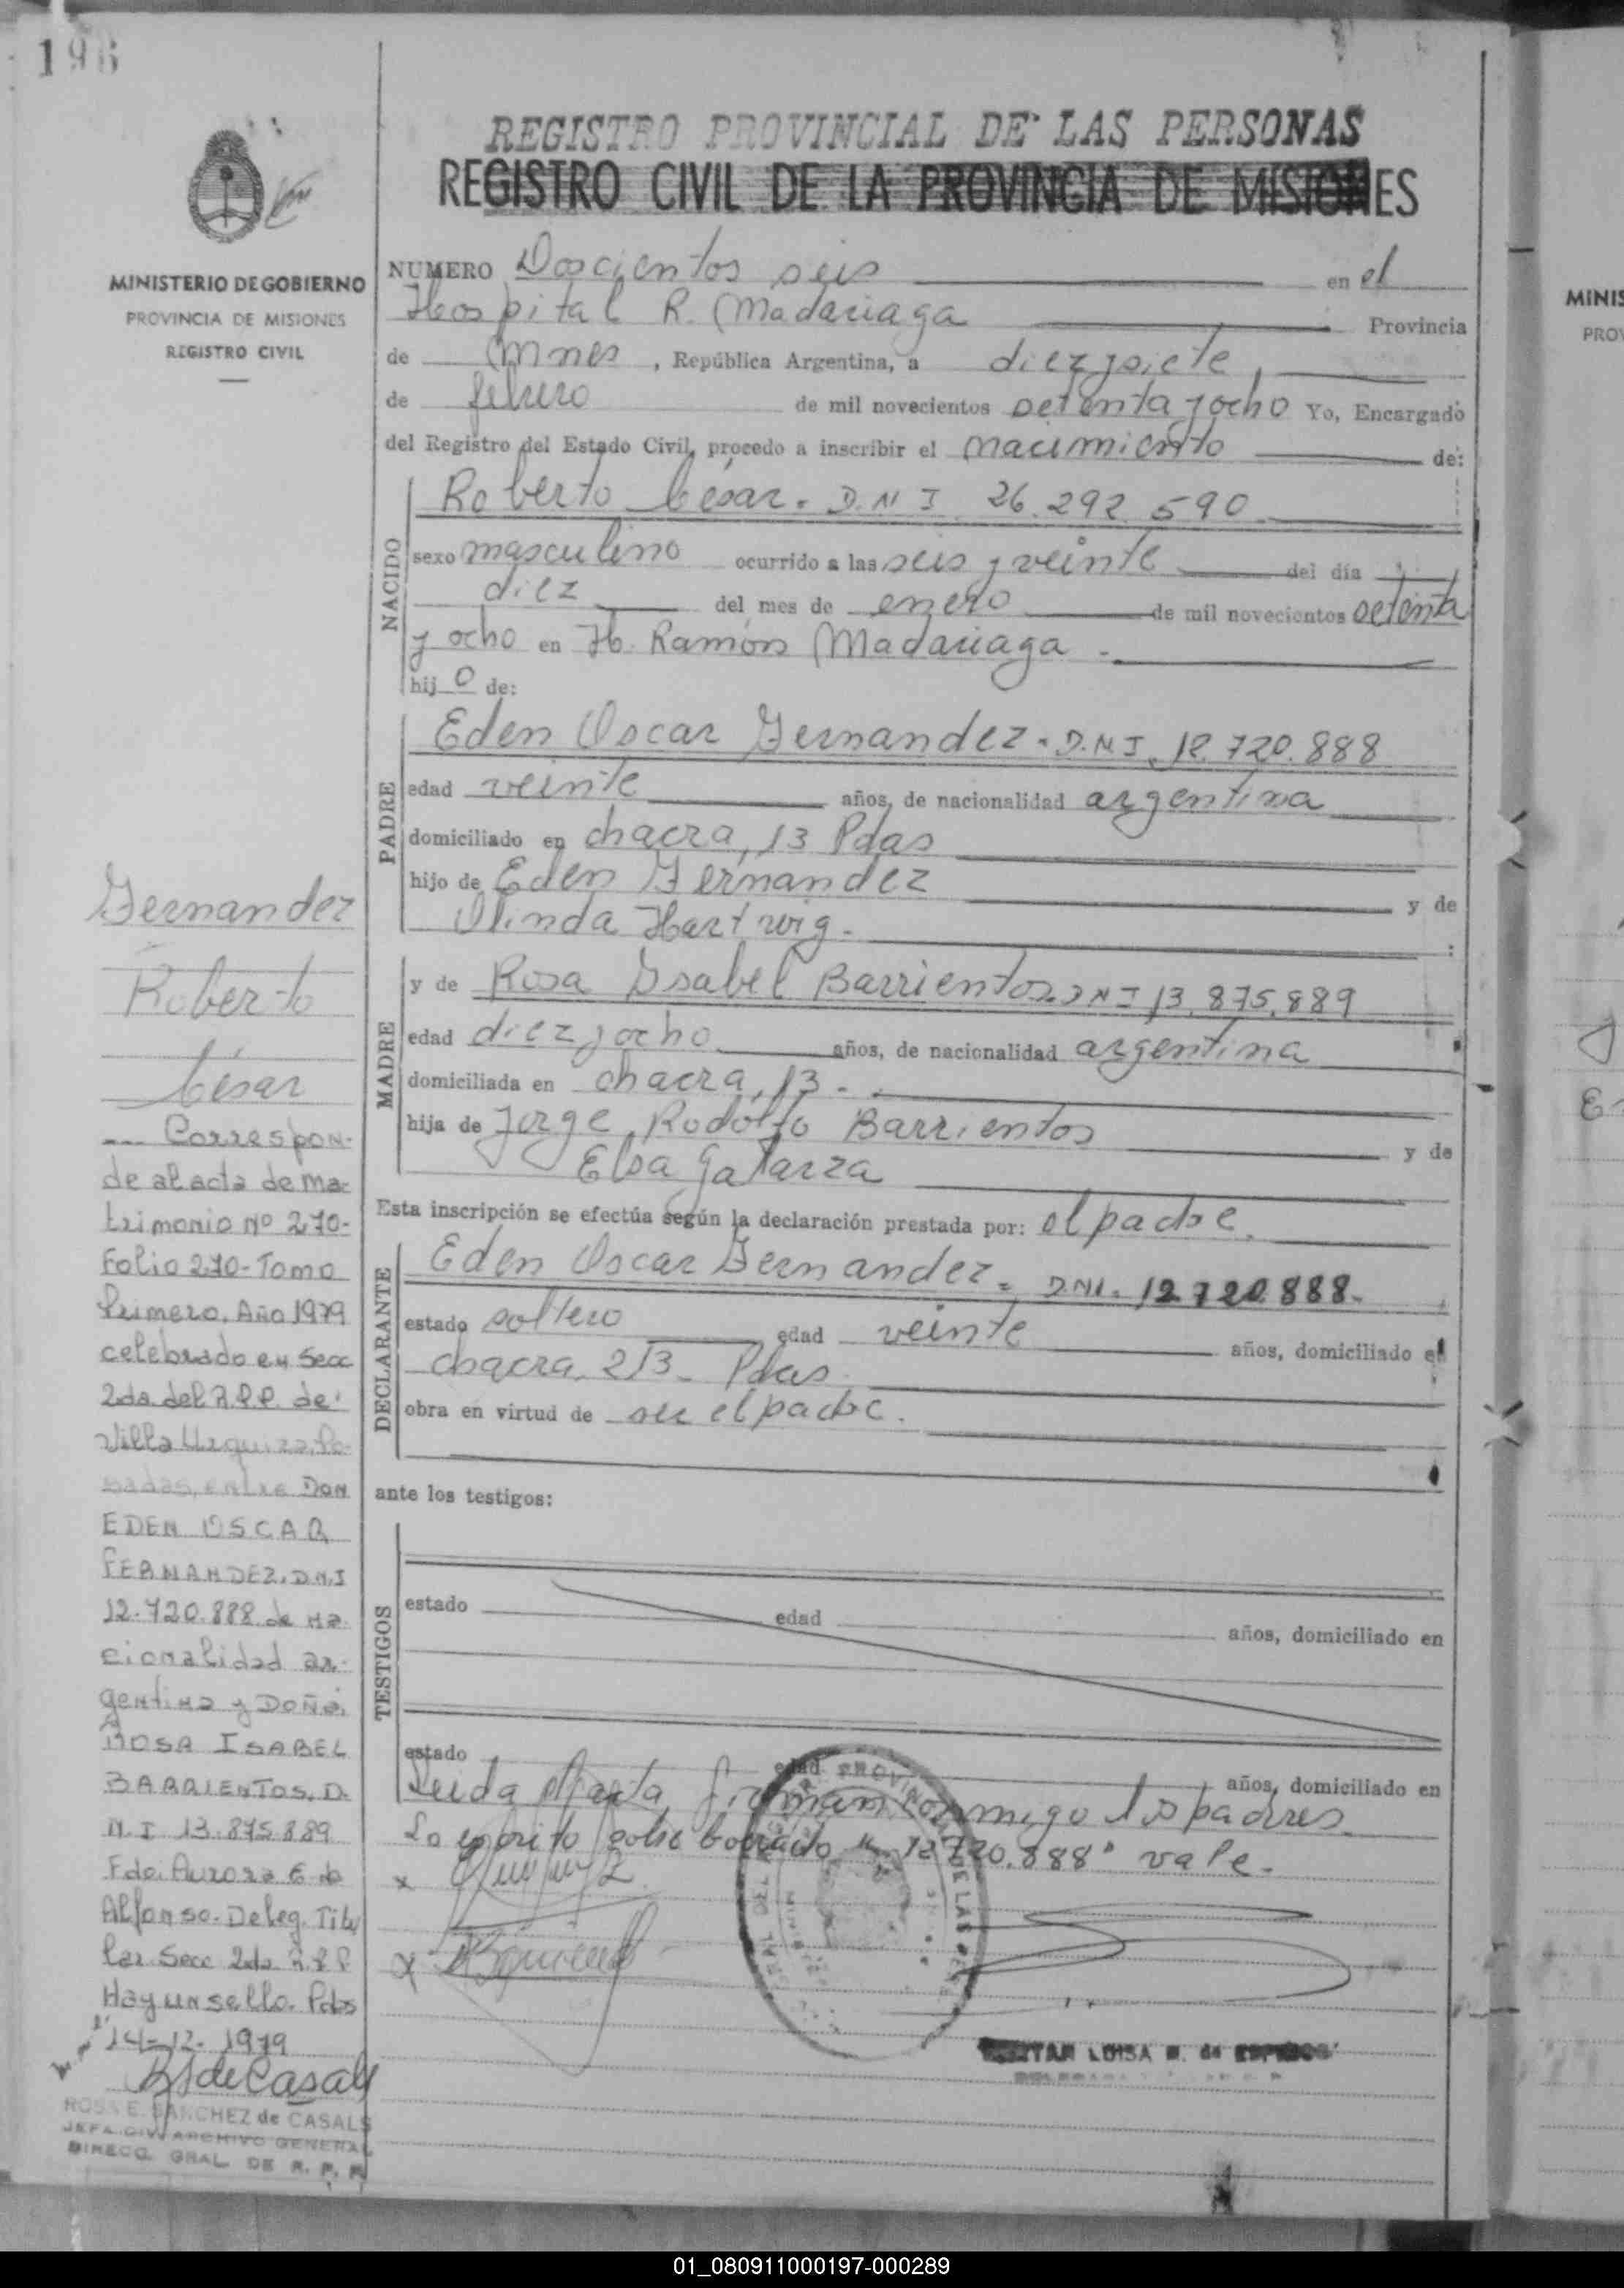 196
MINISTERIO DE GOBIERNO
PROVINCIA DE MISIONES
REGISTRO CIVIL
REGISTRO PROVINCIAL DE LAS PERSONAS
REGISTRO CIVIL DE LA PROVINCIA DE MISIONES
NUMERO Doscientos seis en el
Hospital R. Madariaga Provincia
de Mnes, República Argentina, a diez y siete,
de febrero de mil novecientos setenta y ocho Yo, Encargado
del Registro del Estado Civil, procedo a inscribir el nacimiento de:
NACIDO
Roberto César. D.N.I 26.292.590
sexo masculino ocurrido a las seis y veinte del día
diez del mes de enero de mil novecientos setenta
y ocho en H. Ramón Madariaga.
hijo de:
PADRE
Eden Oscar Fernandez. D.N.I. 12.720.888
edad veinte años, de nacionalidad argentina
domiciliado en chacra, 13 Pdas
hijo de Eden Fernandez y de
Olinda Hartwig. :
MADRE
y de Rosa Ysabel Barrientos. DNI 13.875.889
edad diez y ocho años, de nacionalidad argentina
domiciliada en chacra, 13.
hija de Jorge Rodolfo Barrientos y de
Elsa Galarza
Esta inscripción se efectúa según la declaración prestada por: el padre.
DECLARANTE
Eden Oscar Fernandez. DNI. 12.720.888.
estado soltero edad veinte años, domiciliado en
chacra. 213. Pdas.
obra en virtud de ser el padre.
ante los testigos:
TESTIGOS
estado edad años, domiciliado en
estado edad años, domiciliado en
Leida firman conmigo los padres.
Lo escrito sobre borrado "12.720.888" vale.
x
x
LUISA
Fernandez
Roberto
César
... Correspon-
de al acta de ma-
trimonio Nº 270-
Folio 270-Tomo
Primero. Año 1979
celebrado en Secc
2da. del R.P.P. de
Villa Urquiza. Po-
sadas, entre DON
EDEN OSCAR
FERNANDEZ. D.N.I
12.720.888 de na-
cionalidad ar-
gentina y DOÑA
ROSA ISABEL
BARRIENTOS. D.
N.I 13.875.889
Fdo. Aurora E. de
Alfonso. Deleg. Titu
lar. Secc 2da. R.P.P
Hay un sello. Pdas
14-12-1979
RS de Casals
ROSA E. SANCHEZ de CASALS
JEFA DIV. ARCHIVO GENERAL
DIRECC. GRAL DE R. P. P.
MINIS
PROV
01_080911000197-000289